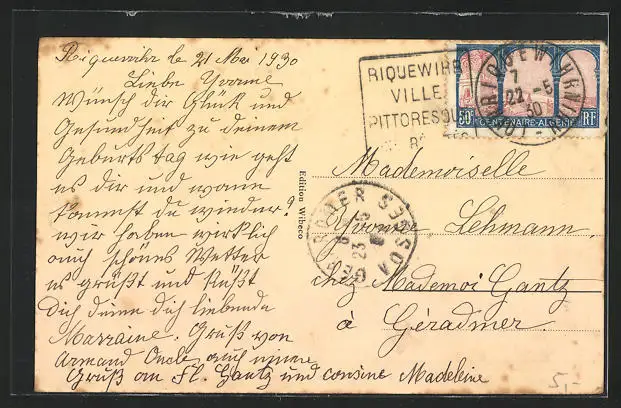 Riquewihr le 21 Mai 1930
Liebe Yvonne
Wünsch dir Glück und
Gesundheit zu deinem
Geburts tag wie geht
es dir und wann
kommst du wieder?
wir haben wirklich
auch schönes Wetter
es grüßt und küßt
Dich deine dich liebende
Marraine. Gruß von
Armand Oncle auch
Gruß an Fl. Gantz und cousine Madeleine
Edition Wibeco
RIQUEWIHR
VILLE
PITTORESQUE
RIQUEWIHR
7
22 -5
30
HAUT-RHIN
50c
CENTENAIRE-ALGÉRIE
RF
GERARDMER VOSGES
23 5
Mademoiselle
Yvonne Lehmann
chez Mademoi Gantz
à Géradmer
5,-